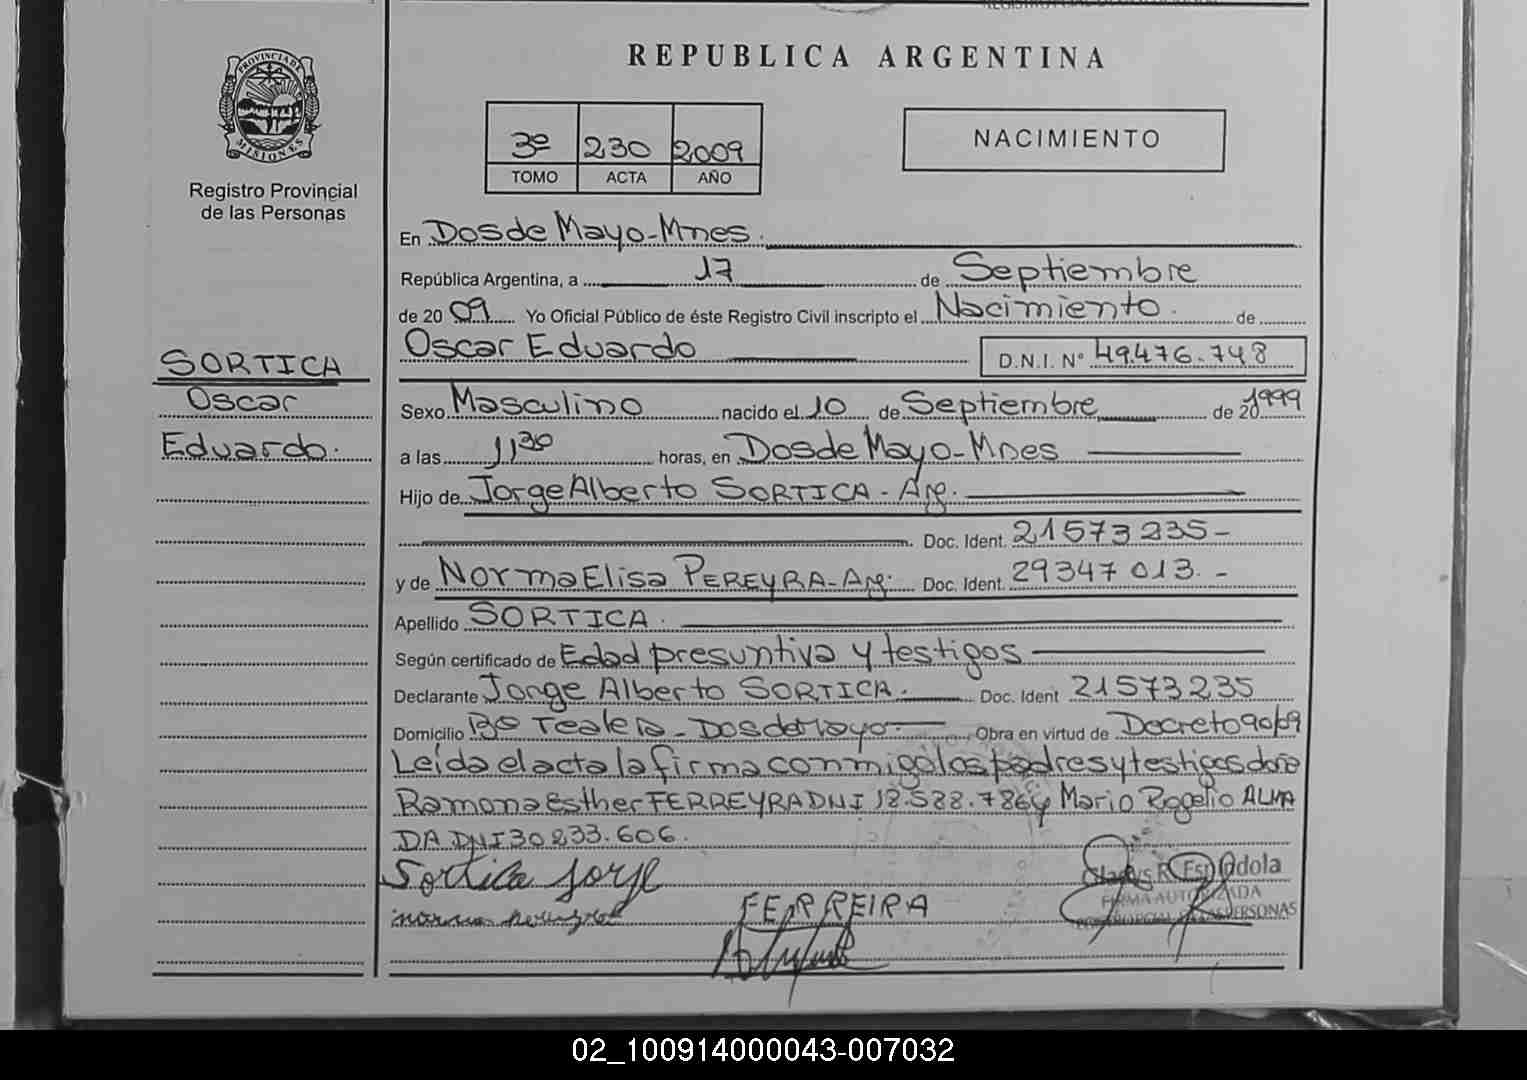 REPUBLICA ARGENTINA
PROVINCIA DE MISIONES
Registro Provincial
de las Personas
3º 230 2009
TOMO ACTA AÑO
NACIMIENTO
SORTICA
Oscar
Eduardo.
En Dos de Mayo-Mnes.
República Argentina, a 17 de Septiembre
de 20 09 Yo Oficial Público de éste Registro Civil inscripto el Nacimiento. de
Oscar Eduardo D.N.I. Nº 49.476.748
Sexo Masculino nacido el 10 de Septiembre de 20 1999
a las 11 30 horas, en Dos de Mayo-Mnes
Hijo de Jorge Alberto SORTICA - Arg.
Doc. Ident. 21573235-
y de Norma Elisa PEREYRA-Arg. Doc. Ident. 29347013.-
Apellido SORTICA.
Según certificado de Edad presuntiva y testigos
Declarante Jorge Alberto SORTICA. Doc. Ident 21573235
Domicilio Bº - Dos de Mayo- Obra en virtud de Decreto 90/09
Leída el acta la firma conmigo los padres y testigos doña
Ramona Esther FERREYRA DNI 18.588.786 y Mario Rogelio ALMA
DA DNI 30833.606.
Sortica Jorge
FERREIRA
Gladys R. Espíndola
FIRMA AUTORIZADA
PERSONAS
02_100914000043-007032